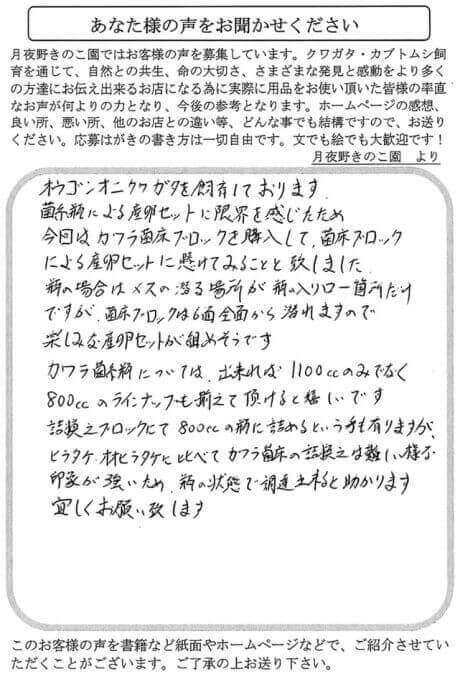 あなた様の声をお聞かせください
月夜野きのこ園ではお客様の声を募集しています。クワガタ・カブトムシ飼
育を通じて、自然との共生、命の大切さ、さまざまな発見と感動をより多く
の方達にお伝え出来るお店になる為に実際に用品をお使い頂いた皆様の率直
なお声が何よりの力となり、今後の参考となります。ホームページの感想、
良い所、悪い所、他のお店との違い等、どんな事でも結構ですので、お送り
ください。応募はがきの書き方は一切自由です。文でも絵でも大歓迎です！
月夜野きのこ園　より
オウゴンオニクワガタを飼育しております
菌糸瓶による産卵セットに限界を感じたため
今回はカワラ菌床ブロックを購入して、菌床ブロック
による産卵セットに懸けてみることと致しました
瓶の場合はメスの潜る場所が瓶の入り口一箇所だけ
ですが、菌床ブロックは6面全面から潜れますので
楽しみな産卵セットが組めそうです
カワラ菌糸瓶については、出来れば1100ccのみでなく
800ccのラインナップも揃えて頂けると嬉しいです
詰換えブロックにて800ccの瓶に詰めるという手も有りますが、
ヒラタケ、オオヒラタケに比べてカワラ菌床の詰換えは難しい様な
印象が強いため、瓶の状態で調達出来ると助かります
宜しくお願い致します
このお客様の声を書籍など紙面やホームページなどで、ご紹介させてい
ただくことがございます。ご了承の上お送り下さい。